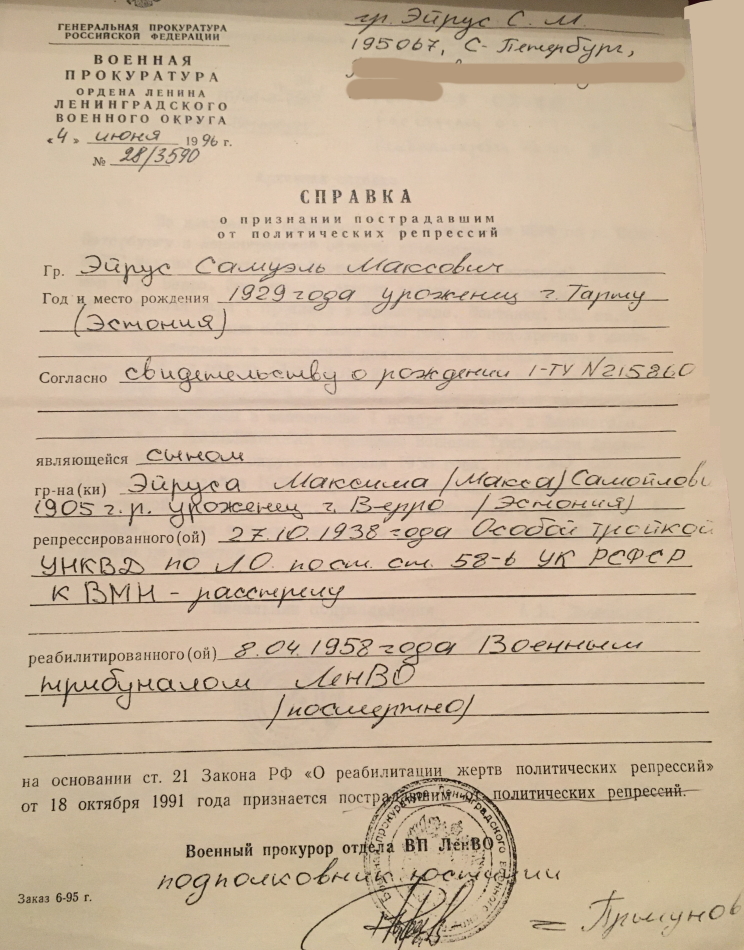 ГЕНЕРАЛЬНАЯ ПРОКУРАТУРА
РОССИЙСКОЙ ФЕДЕРАЦИИ
ВОЕННАЯ
ПРОКУРАТУРА
ОРДЕНА ЛЕНИНА
ЛЕНИНГРАДСКОГО
ВОЕННОГО ОКРУГА
«4» июня 1996 г.
№ 28/3590
гр. Эйрус С. М.
195067, С-Петербург,
СПРАВКА
о признании пострадавшим
от политических репрессий
Гр. Эйрус Самуэль Максович
Год и место рождения 1929 года уроженец г. Тарту
(Эстония)
Согласно свидетельству о рождении I-ТУ N215860
являющейся сыном
гр-на(ки) Эйруса Максима /Макса/ Самойлови
1905 г.р. уроженец г. Верро /Эстония/
репрессированного(ой) 27.10.1938 года Особой тройкой
УНКВД по ЛО. пост. ст. 58-6 УК РСФСР
к ВМН - расстрелу
реабилитированного(ой) 8.04.1958 года Военным
трибуналом ЛенВО
/посмертно/
на основании ст. 21 Закона РФ «О реабилитации жертв политических репрессий»
от 18 октября 1991 года признается пострадавшим от политических репрессий.
Военный прокурор отдела ВП ЛенВО
подполковник юстиции
Заказ 6-95 г.